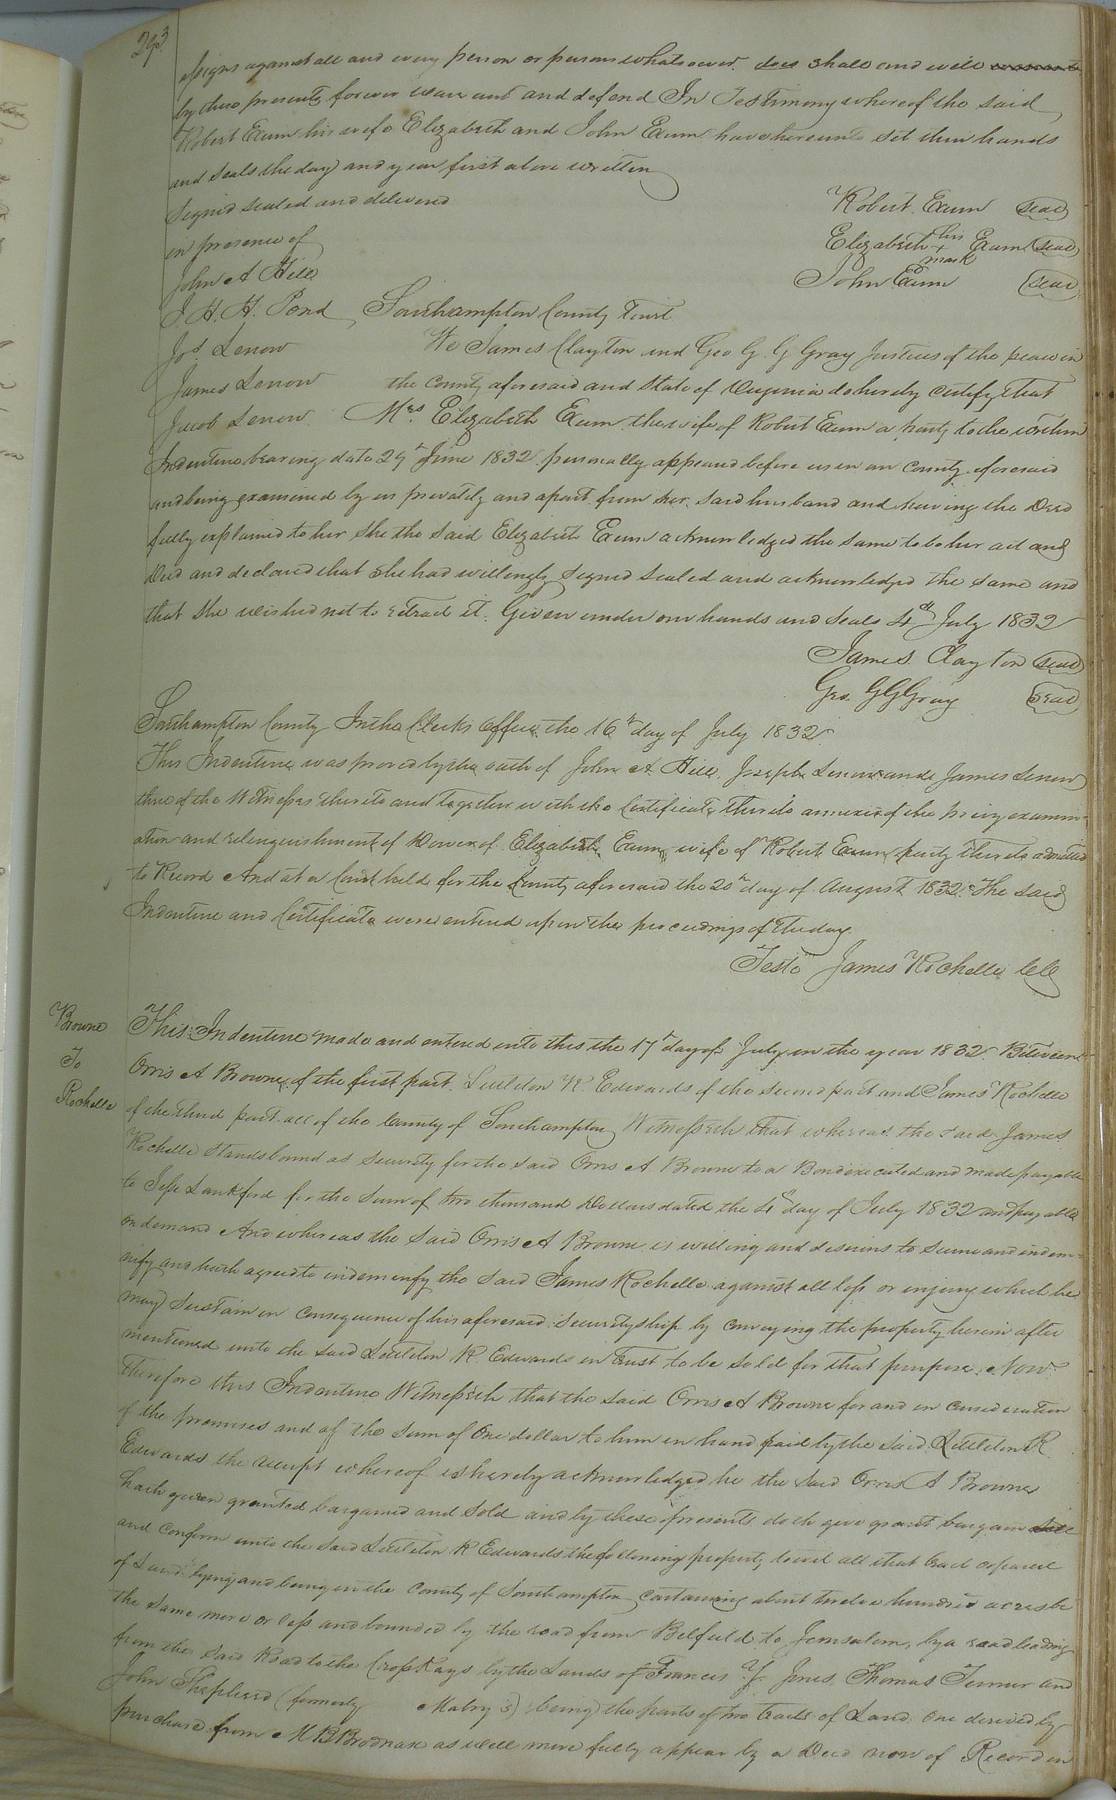 293
assigns against all and every person or persons whatsoever does shall and will
by these presents forever warrant and defend In Testimony whereof the said
Robert Exum his wife Elizabeth and John Exum have hereunto set their hands
and seals the day and year first above written
Signed sealed and delivered
in presence of
John A Hill
J. H. H. Pond
Jos Lenow
James Lenow
Jacob Lenow
Robert Exum seal
Elizabeth her + mark Exum seal
John Exum seal
Southampton County Towit
We James Clayton and Geo G. G Gray Justices of the peace in
the County aforesaid and State of Virginia do hereby certify that
Mrs Elizabeth Exum the wife of Robert Exum a party to the within
Indenture bearing date 29th June 1832 personally appeared before us in our County aforesaid
and being examined by us privately and apart from her said husband and having the Deed
fully explained to her She the said Elizabeth Exum acknowledged the same to be her act and
Deed and declared that she had willingly signed sealed and acknowledged the same and
that She wished not to retract it. Given under our hands and seals 4th July 1832
James Clayton seal
Geo. G G Gray seal
Southampton County In the Clerks Office the 16th day of July 1832.
This Indenture was proved by the oath of John A. Hill, Joseph Lenow and James Lenow
three of the Witnesses thereto and together with the Certificate thereto annexed of the privy examin-
ation and relinquishment of Dower of Elizabeth Exum, wife of Robert Exum party thereto admitted
to Record And at a Court held for the County aforesaid the 20th day of August 1832. The said
Indenture and Certificate were entered upon the proceedings of the day.
Teste James Rochelle CC
Browne
To
Rochelle
This Indenture made and entered into this the 17th day of July in the year 1832. Between
Orris A Browne of the first part Littleton R Edwards of the second part and James Rochelle
of the third part all of the County of Southampton Witnesseth that whereas the said James
Rochelle stands bound as security for the said Orris A Browne to a Bond executed and made payable
to Jesse Lankford for the sum of two thousand Dollars dated the 4th day of July 1832 and payable
on demand And whereas the said Orris A Browne is willing and desirous to secure and indem-
nify and hath agreed to indemnify the said James Rochelle against all loss or injury which he
may Sustain in consequence of his aforesaid securityship by conveying the property herein after
mentioned unto the said Littleton R. Edwards in trust to be sold for that purpose. Now
Therefore this Indenture Witnesseth that the said Orris A Browne for and in consideration
of the premises and of the sum of One dollar to him in hand paid by the said Littleton R
Edwards the receipt whereof is hereby acknowledged he the said Orris A Browne
hath given granted bargained and sold and by these presents doth give grant bargain sell
and confirm unto the said Littleton R Edwards the following property towit all that tract or parcel
of Land lying and being in the County of Southampton containing about twelve hundred acres be
the same more or less and bounded by the road from Belfield to Jerusalem, by a road leading
from the said Road to the Cross Keys by the Lands of Francis Y. Jones Thomas Turner and
John Shepherd (formerly Mabry's) being the parts of two tracts of Land. One derived by
purchase from M B Brodnax as will more fully appear by a Deed now of Record in